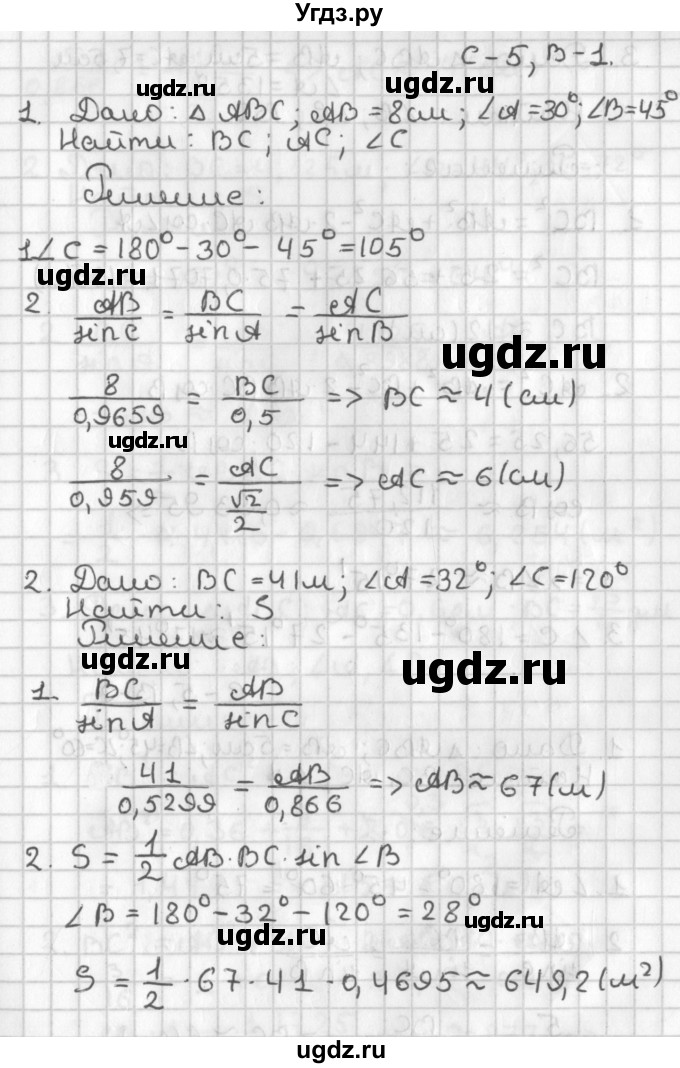 Угдз.ру
С-5, В-1.
ugdz.ru ugdz.ru
1. Дано: △ ABC; AB = 8см; ∠A = 30°; ∠B = 45°
Найти: BC; AC; ∠C
Решение:
1∠C = 180° - 30° - 45° = 105°
ugdz.ru
2. AB/sinC = BC/sinA = AC/sinB
ugdz.ru
8/0,9659 = BC/0,5 => BC ≈ 4(см)
ugdz.ru
8/0,959 = AC/(√2/2) => AC ≈ 6(см)
2. Дано: BC = 41м; ∠A = 32°; ∠C = 120°
Найти: S
Решение:
ugdz.ru ugdz.ru
1. BC/sinA = AB/sinC
41/0,5299 = AB/0,866 => AB ≈ 67(м)
2. S = 1/2 AB·BC·sin∠B
∠B = 180° - 32° - 120° = 28°
ugdz.ru ugdz.ru
S = 1/2 · 67 · 41 · 0,4695 ≈ 649,2(м²)
ugdz.ru